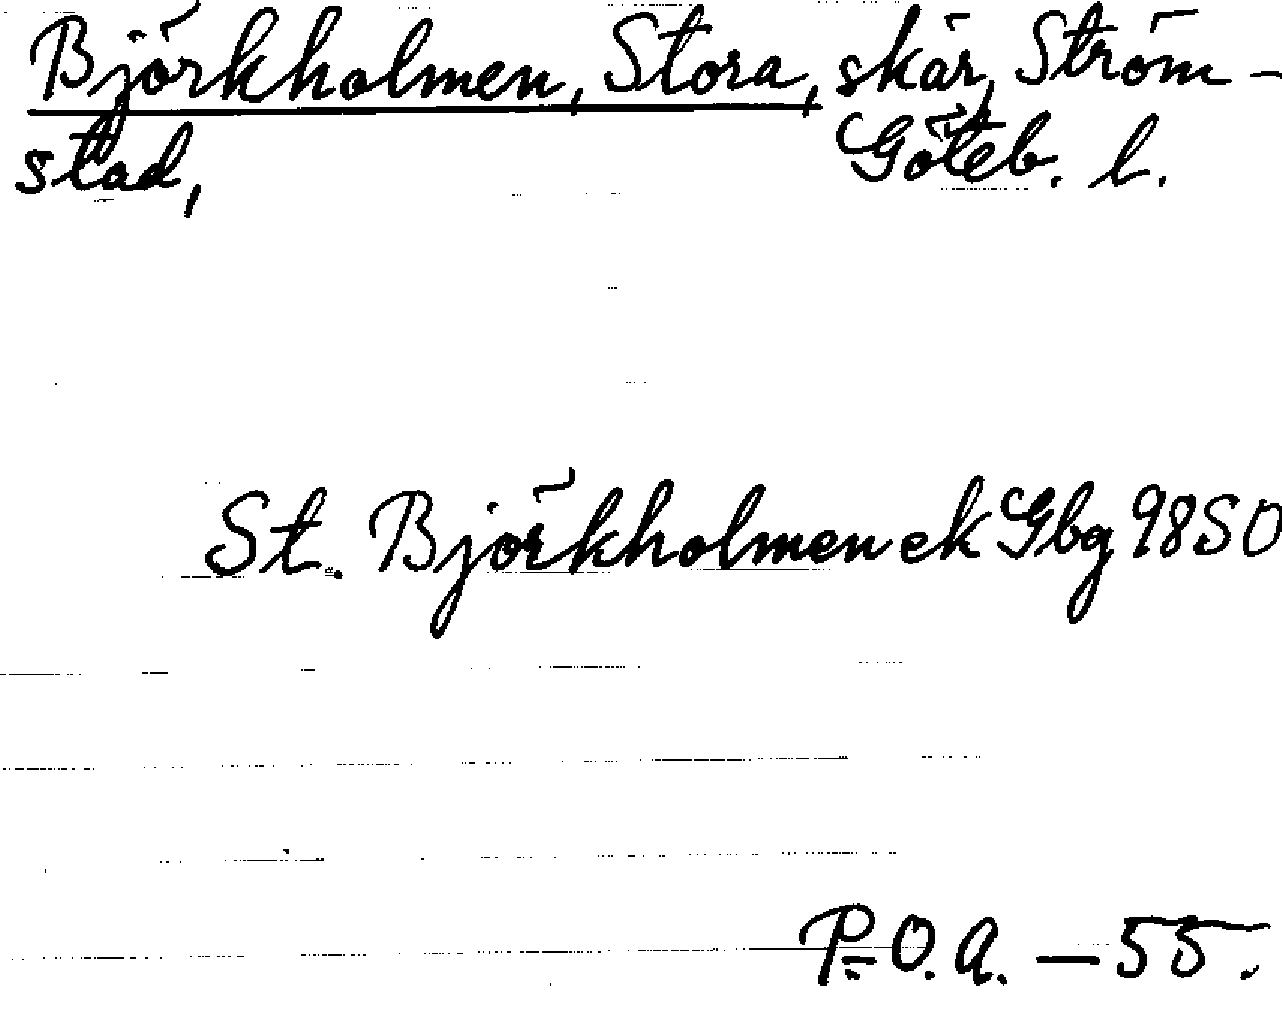 Björkholmen, Stora, skär, Ström-
stad, Göteb. l.
St. Björkholmen ek Gbg 98 SO
P.O.A. — 55.